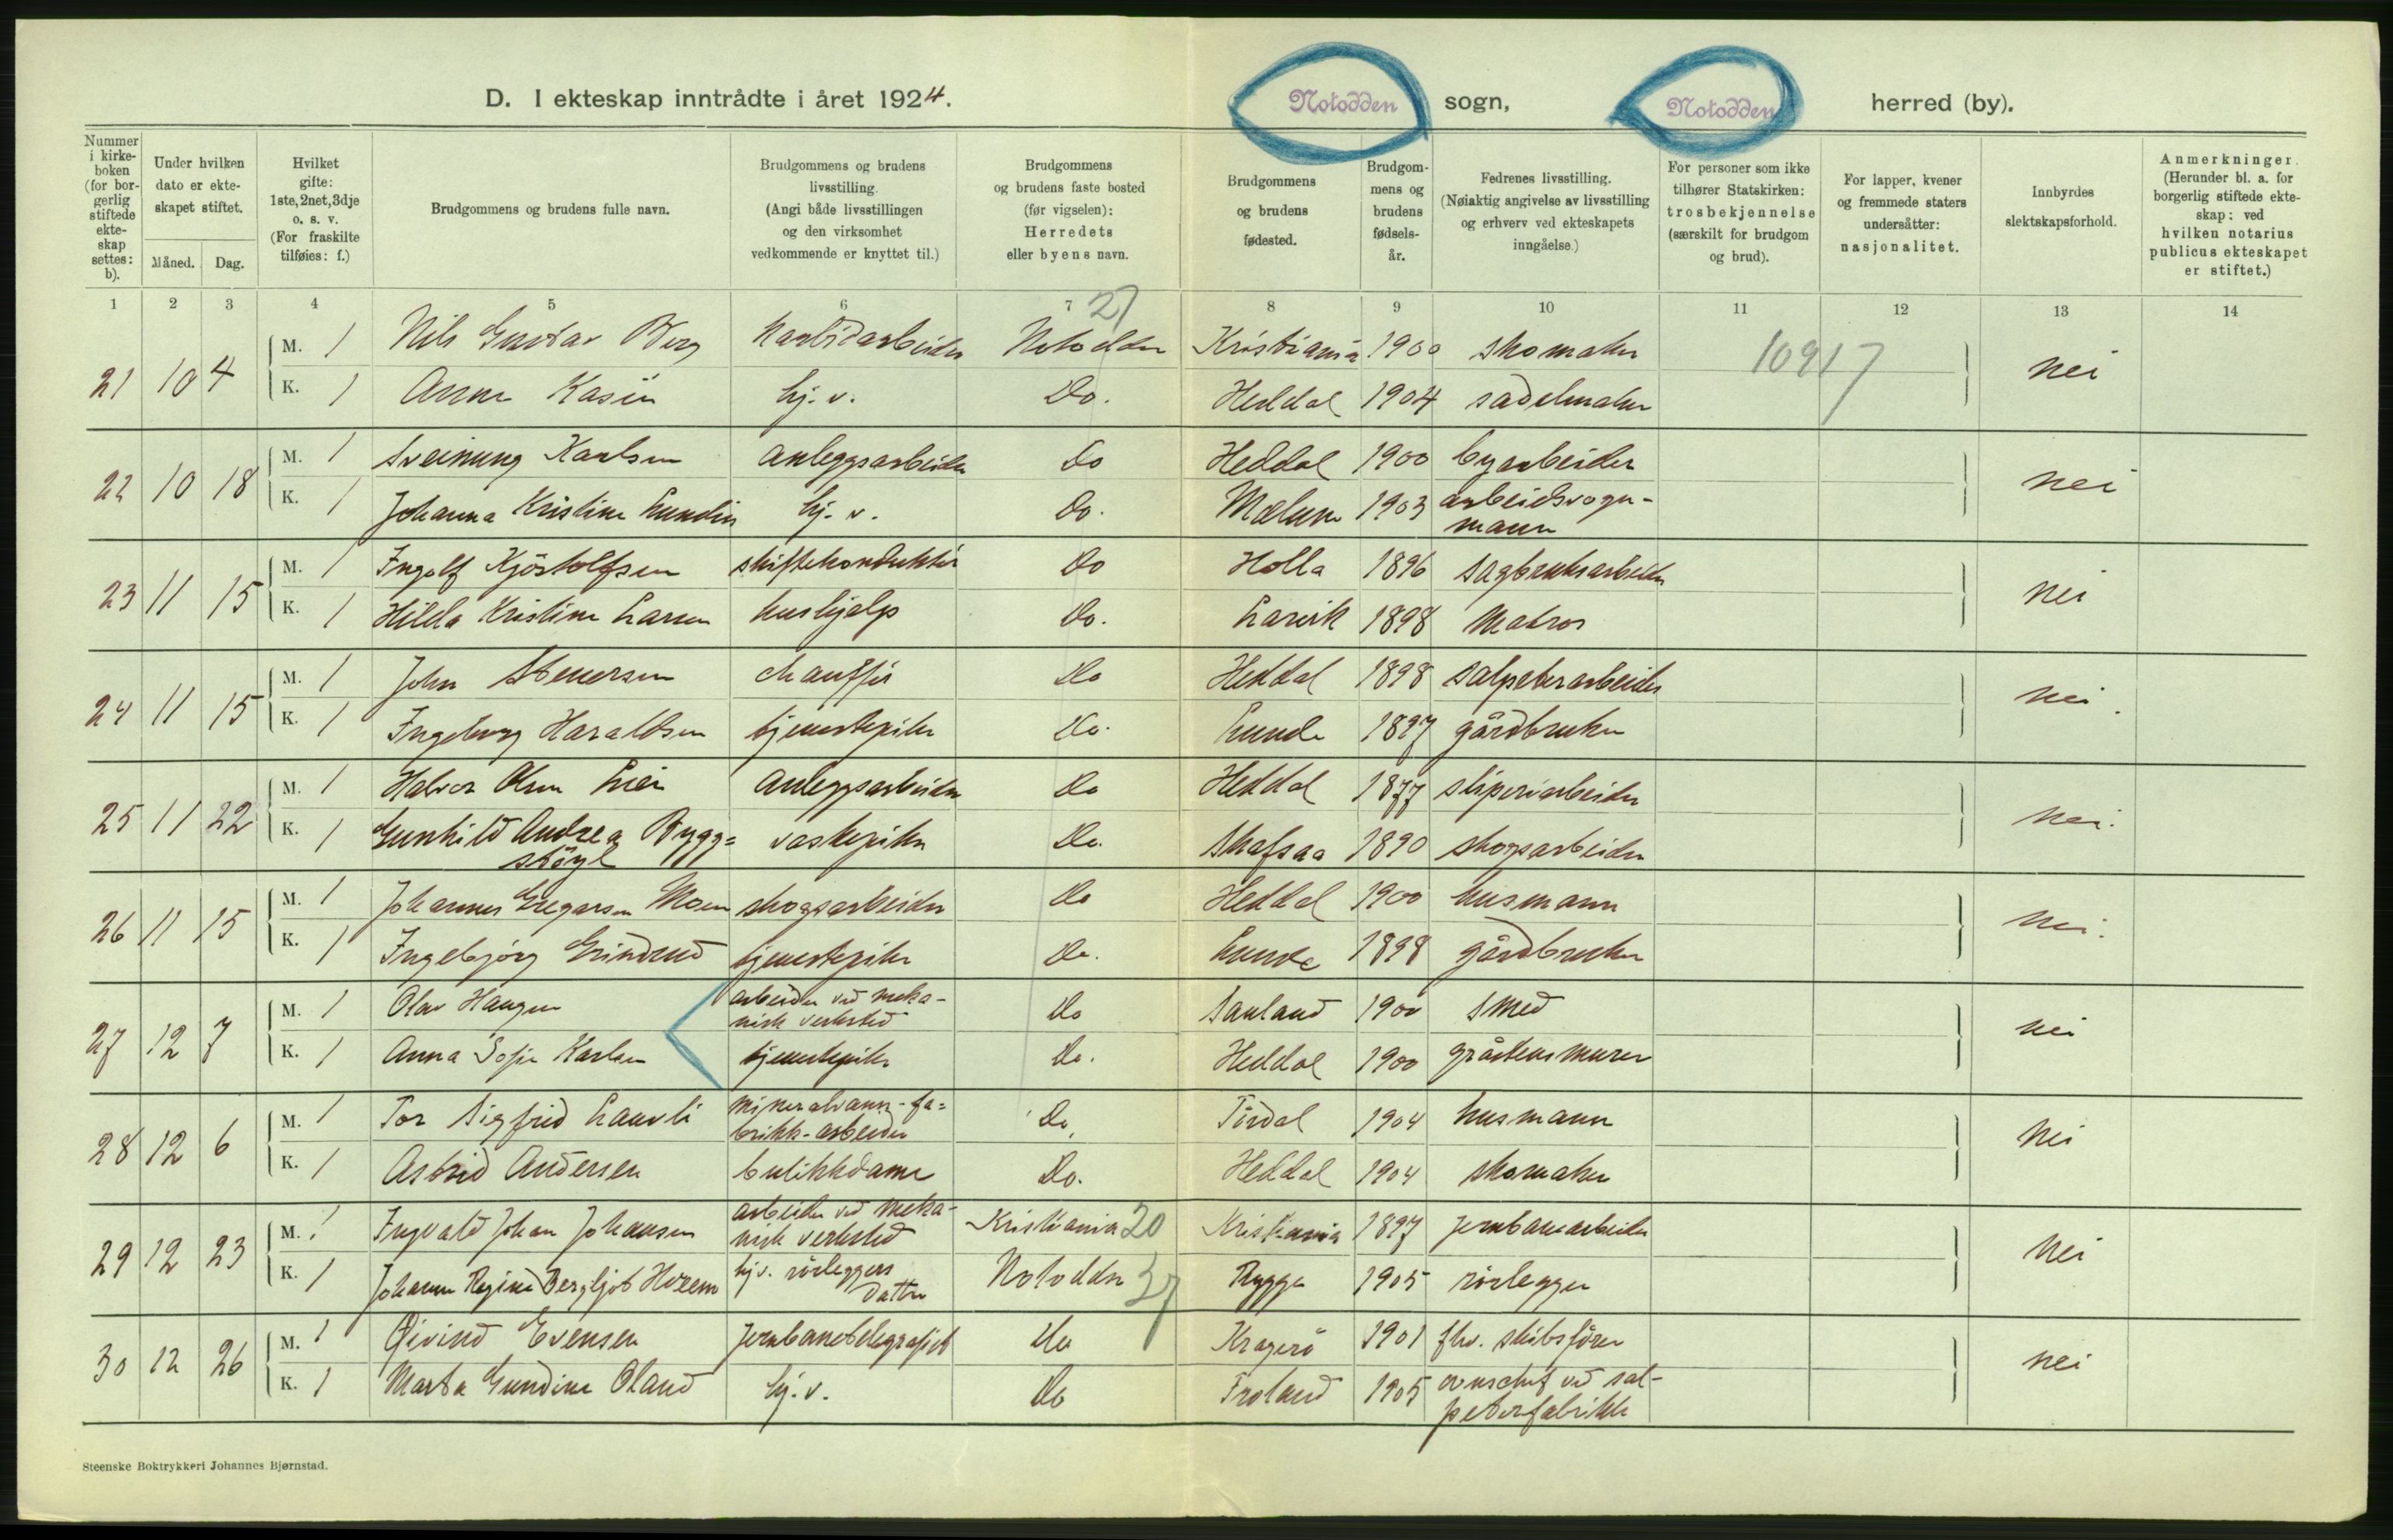 D. I ekteskap inntrådte i året 1924.
Notodden sogn, Notodden herred (by).
Nummer i kirke-boken (for bor-gerlig stiftede ekte-skap settes: b).
Under hvilken dato er ekte-skapet stiftet.
Måned. Dag.
Hvilket gifte: 1ste, 2net, 3dje o. s. v. (For fraskilte tilføies: f.)
Brudgommens og brudens fulle navn.
Brudgommens og brudens livsstilling. (Angi både livsstillingen og den virksomhet vedkommende er knyttet til.)
Brudgommens og brudens faste bosted (før vigselen): Herredets eller byens navn.
Brudgommens og brudens fødested.
Brudgom-mens og brudens fødsels-år.
Fedrenes livsstilling. (Nøiaktig angivelse av livsstilling og erhverv ved ekteskapets inngåelse.)
For personer som ikke tilhører Statskirken: trosbekjennelse (særskilt for brudgom og brud).
For lapper, kvener og fremmede staters undersåtter: nasjonalitet.
Innbyrdes slektskapsforhold.
Anmerkninger. (Herunder bl. a. for borgerlig stiftede ekte-skap: ved hvilken notarius publicus ekteskapet er stiftet.)
1 2 3 4 5 6 7 8 9 10 11 12 13 14
27
21 10 4 M. 1 Nils Gustav Berg karbidarbeider Notodden Kristiania 1900 skomaker 10917 nei
K. 1 Anne Kasin hj. v. Do. Heddal 1904 sadelmaker
22 10 18 M. 1 Sveinung Karlsen anleggsarbeider Do Heddal 1900 byarbeider nei
K. 1 Johanna Kristine Lundin hj. v. Do. Mælum 1903 arbeidsvogn-
mann
23 11 15 M. 1 Ingolf Kjöstolfsen skiftekonduktör Do Holla 1896 sagbruksarbeider nei
K. 1 Hilda Kristine Larsen hushjelp Do. Larvik 1898 Matros
24 11 15 M. 1 John Stenersen chauffør Do Heddal 1898 salpeterarbeider nei.
K. 1 Ingeborg Haraldsen tjenestepike Do. Lunde 1897 gårdbruker
25 11 22 M. 1 Halvor Olsen Lien Anleggsarbeider Do Heddal 1877 sliperiarbeider nei.
K. 1 Gunhild Andrea Bygg=
støyl vaskepike Do. Skafsaa 1890 skogsarbeider
26 11 15 M. 1 Johannes Gregarsen Moen skogsarbeider Do Heddal 1900 husmann nei.
K. 1 Ingebjørg Grindrud tjenestepike Do. Lunde 1898 gårdbruker
27 12 7 M. 1 Olav Haugen arbeider ved meka-
nisk verksted Do Sauland 1900 smed nei
K. 1 Anna Sofie Karlsen tjenestepike Do. Heddal 1900 gråstensmurer
28 12 6 M. 1 Tor Sigfred Lauvli mineralvann-fa=
brikk-arbeider Do. Tirdal 1904 husmann nei
K. 1 Astrid Andersen butikkdame Do. Heddal 1904 skomaker
29 12 23 M. 1 Ingvald Johan Johansen arbeider ved meka-
nisk verksted Kristiania 20 Kristiania 1897 jernbanearbeider nei
K. 1 Johanne Regine Bergljot Horem hj. v. rörleggers
datter Notodden 37 Rygge 1905 rörlegger
30 12 26 M. 1 Øivind Evensen jernbanetelegrafist Do Kragerö 1901 fhv. skibsfører nei
K. 1 Marta Gundine Oland hj. v. Do Froland 1905 ovnschef ved sal-
peterfabrikk
Steenske Boktrykkeri Johannes Bjørnstad.